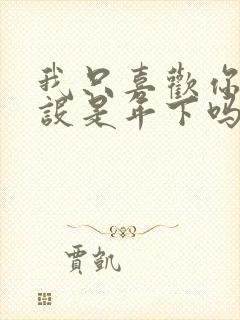 我只喜歡你
設是年下吗
賈凱